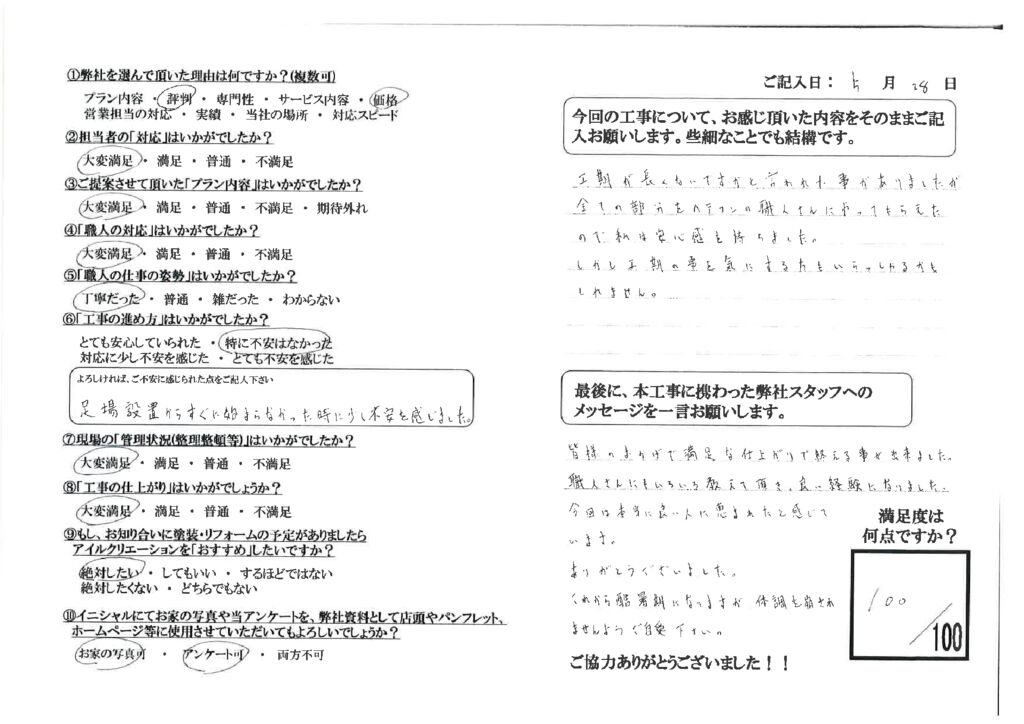 ①弊社を選んで頂いた理由は何ですか?(複数可)
プラン内容 ・ 評判 ・ 専門性 ・ サービス内容 ・ 価格
営業担当の対応 ・ 実績 ・ 当社の場所 ・ 対応スピード
②担当者の「対応」はいかがでしたか?
大変満足 ・ 満足 ・ 普通 ・ 不満足
③ご提案させて頂いた「プラン内容」はいかがでしたか?
大変満足 ・ 満足 ・ 普通 ・ 不満足 ・ 期待外れ
④「職人の対応」はいかがでしたか?
大変満足 ・ 満足 ・ 普通 ・ 不満足
⑤「職人の仕事の姿勢」はいかがでしたか?
丁寧だった ・ 普通 ・ 雑だった ・ わからない
⑥「工事の進め方」はいかがでしたか?
とても安心していられた ・ 特に不安はなかった
対応に少し不安を感じた ・ とても不安を感じた
よろしければ、ご不安に感じられた点をご記入下さい
足場設置からすぐに始まらなかった時に少し不安を感じました。
⑦現場の「管理状況(整理整頓等)」はいかがでしたか?
大変満足 ・ 満足 ・ 普通 ・ 不満足
⑧「工事の仕上がり」はいかがでしょうか?
大変満足 ・ 満足 ・ 普通 ・ 不満足
⑨もし、お知り合いに塗装・リフォームの予定がありましたら
アイルクリエーションを「おすすめ」したいですか?
絶対したい ・ してもいい ・ するほどではない
絶対したくない ・ どちらでもない
⑩イニシャルにてお家の写真や当アンケートを、弊社資料として店頭やパンフレット、
ホームページ等に使用させていただいてもよろしいでしょうか?
お家の写真可 ・ アンケート可 ・ 両方不可
ご記入日: 5 月 28 日
今回の工事について、お感じ頂いた内容をそのままご記
入お願いします。些細なことでも結構です。
工期が長くないですかと言われた事がありましたが
全ての部分をベテランの職人さんにやってもらえた
ので私は安心感を持ちました。
しかし工期の事を気にする方もいらっしゃるかも
しれません。
最後に、本工事に携わった弊社スタッフへの
メッセージを一言お願いします。
皆様のおかげで満足な仕上がりで終える事が出来ました。
職人さんにもいろいろ教えて頂き、良い経験になりました。
今回は本当に良い人に恵まれたと感じて
います。
ありがとうございました。
これから酷暑期になりますが 体調を崩され
ませんようご自愛下さい。
満足度は
何点ですか?
100/100
ご協力ありがとうございました!!